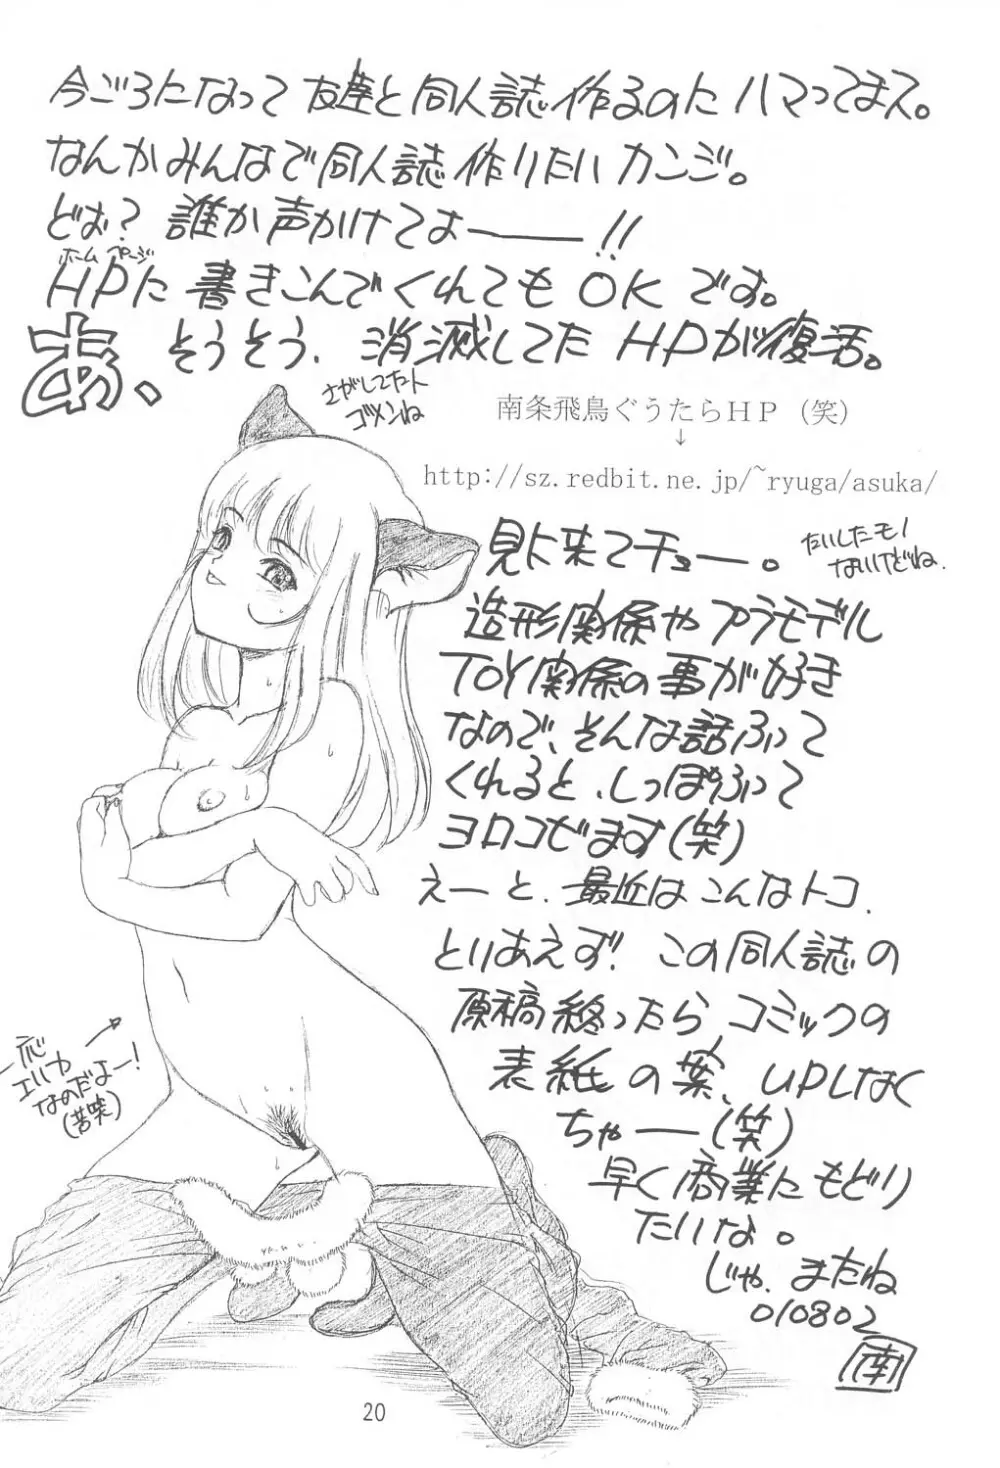 今ごろになって友達と同人誌作るのにハマってます。
なんかみんなで同人誌作りたいカンジ。
どぉ？誰か声かけてよーー!!
ホームページ
HPに書きこんでくれてもOKです。
あ、そうそう、消滅してたHPが復活。
さがしてたト
ゴメンね
南条飛鳥ぐうたらＨＰ（笑）
↓
http://sz.redbit.ne.jp/~ryuga/asuka/
見に来てチョー。
たいしたモノ
ないけどね.
造形関係やプラモデル
TOY関係の事が好き
なので、そんな話ふって
くれると、しっぽふって
ヨロコビます(笑)
えーと、最近はこんなトコ、
とりあえず!この同人誌の
原稿終ったら、コミックの
表紙の案、UPしなく
ちゃー(笑)
早く商業にもどり
たいな。
じゃ、またね
010802
南
一応
エルカ
なのだよー!
(苦笑)
20